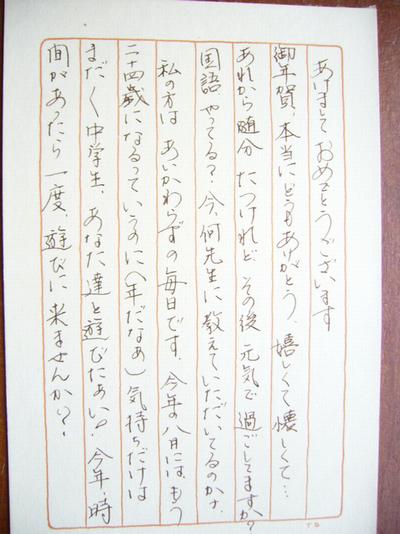 あけまして おめでとうございます
御年賀、本当にどうもありがとう、嬉しくて懐しくて…
あれから随分 たつけれど その後 元気で 過ごしてますか?
国語 やってる?今、何先生に教えていただいてるのかナ
私の方は あいかわらずの毎日です、今年の八月には、もう
二十四歳になるっていうのに(年だなぁ)気持ちだけは
まだ〱中学生、あなた達と遊びたぁい。今年、時
間があったら一度、遊びに来ませんか?